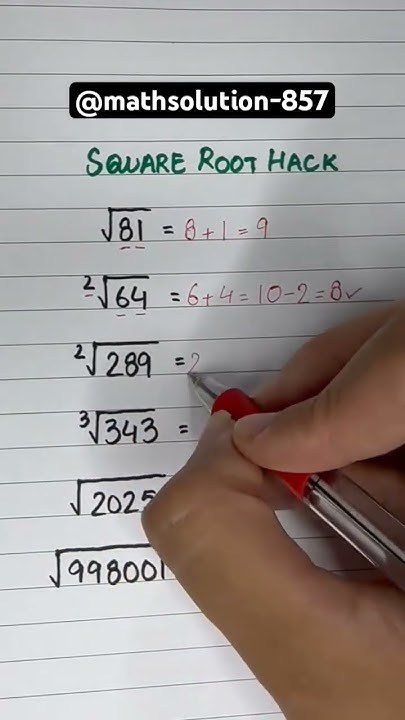 @mathsolution-857
SQUARE ROOT HACK
√81 = 8+1=9
²√64 = 6+4=10-2=8✓
²√289 = 2
³√343 =
√2025
√998001